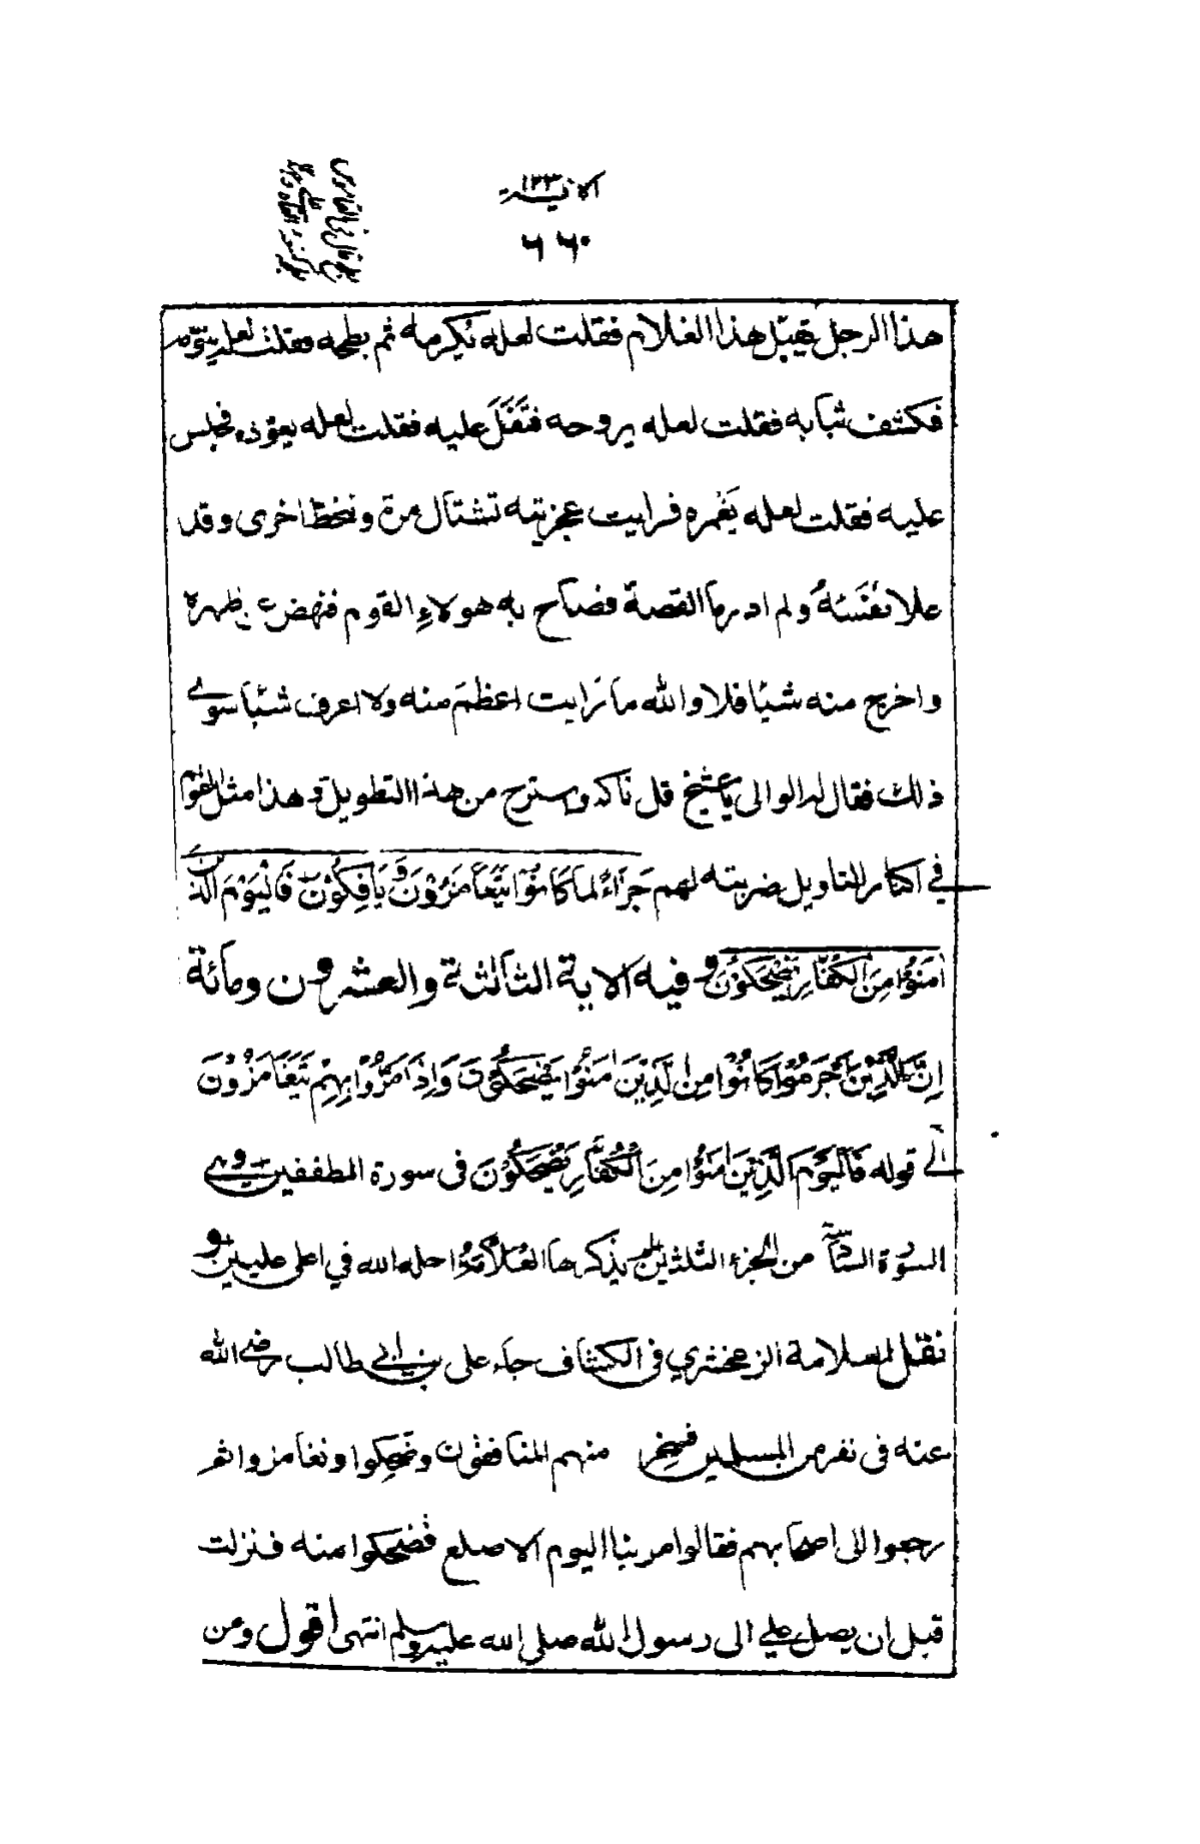 الآية ١٢٣
٦٦٠
هذا الرجل يقبّل هذا الغلام فقلت لعله يكرمه ثم بطحه فقلت لعله ينوّمه
فكشف ثيابه فقلت لعله يروحه فتَفَلَ عليه فقلت لعله يعوّذه فجلس
عليه فقلت لعله يَغْمره فرايت عجزيته تشتال مرة وتنحط اخرى وقد
علا نفَسُهُ ولم ادر ما القصة فصاح به هولاءِ القوم فنهض عن ظهره
واخرج منه شيئا فلا والله ما رايت اعظمَ منه ولا اعرف شيئا سوى
ذلك فقال له الوالى يا شيخ قل ناكه واسترح من هذا التطويل وهذا مثل القوم
في اكثار التاويل ضربته لهم جَزَاءً لما كَانُوْا يَتَغَامَزُوْنَ وَ يَافِكُوْنَ فَالْيَوْمَ الَّذِيْنَ
اٰمَنُوْا مِنَ الْكُفَّارِ يَضْحَكُوْنَ وفيه الاية الثالثة والعشرون ومائة
اِنَّ الَّذِيْنَ اَجْرَمُوْا كَانُوْا مِنَ الَّذِيْنَ اٰمَنُوْا يَضْحَكُوْنَ وَاِذَا مَرُّوْا بِهِمْ يَتَغَامَزُوْنَ
الى قوله فَالْيَوْمَ الَّذِيْنَ اٰمَنُوْا مِنَ الْكُفَّارِ يَضْحَكُوْنَ فى سورة المطففين وهى
السورة السادسة من الجزء الثلثين لم يذكرها العلامة احله الله في اعلى عليين و
نقل العلامة الزمخشري فى الكشاف جاء على بن ابي طالب رضى الله
عنه فى نفر من المسلمين فسخر منهم المنافقون وضحكوا وتغامزوا ثم
رجعوا الى اصحابهم فقالوا راينا اليوم الاصلع فضحكوا منه فنزلت
قبل ان يصل علي الى رسول الله صلى الله عليه وسلم انتهى اقول ومن